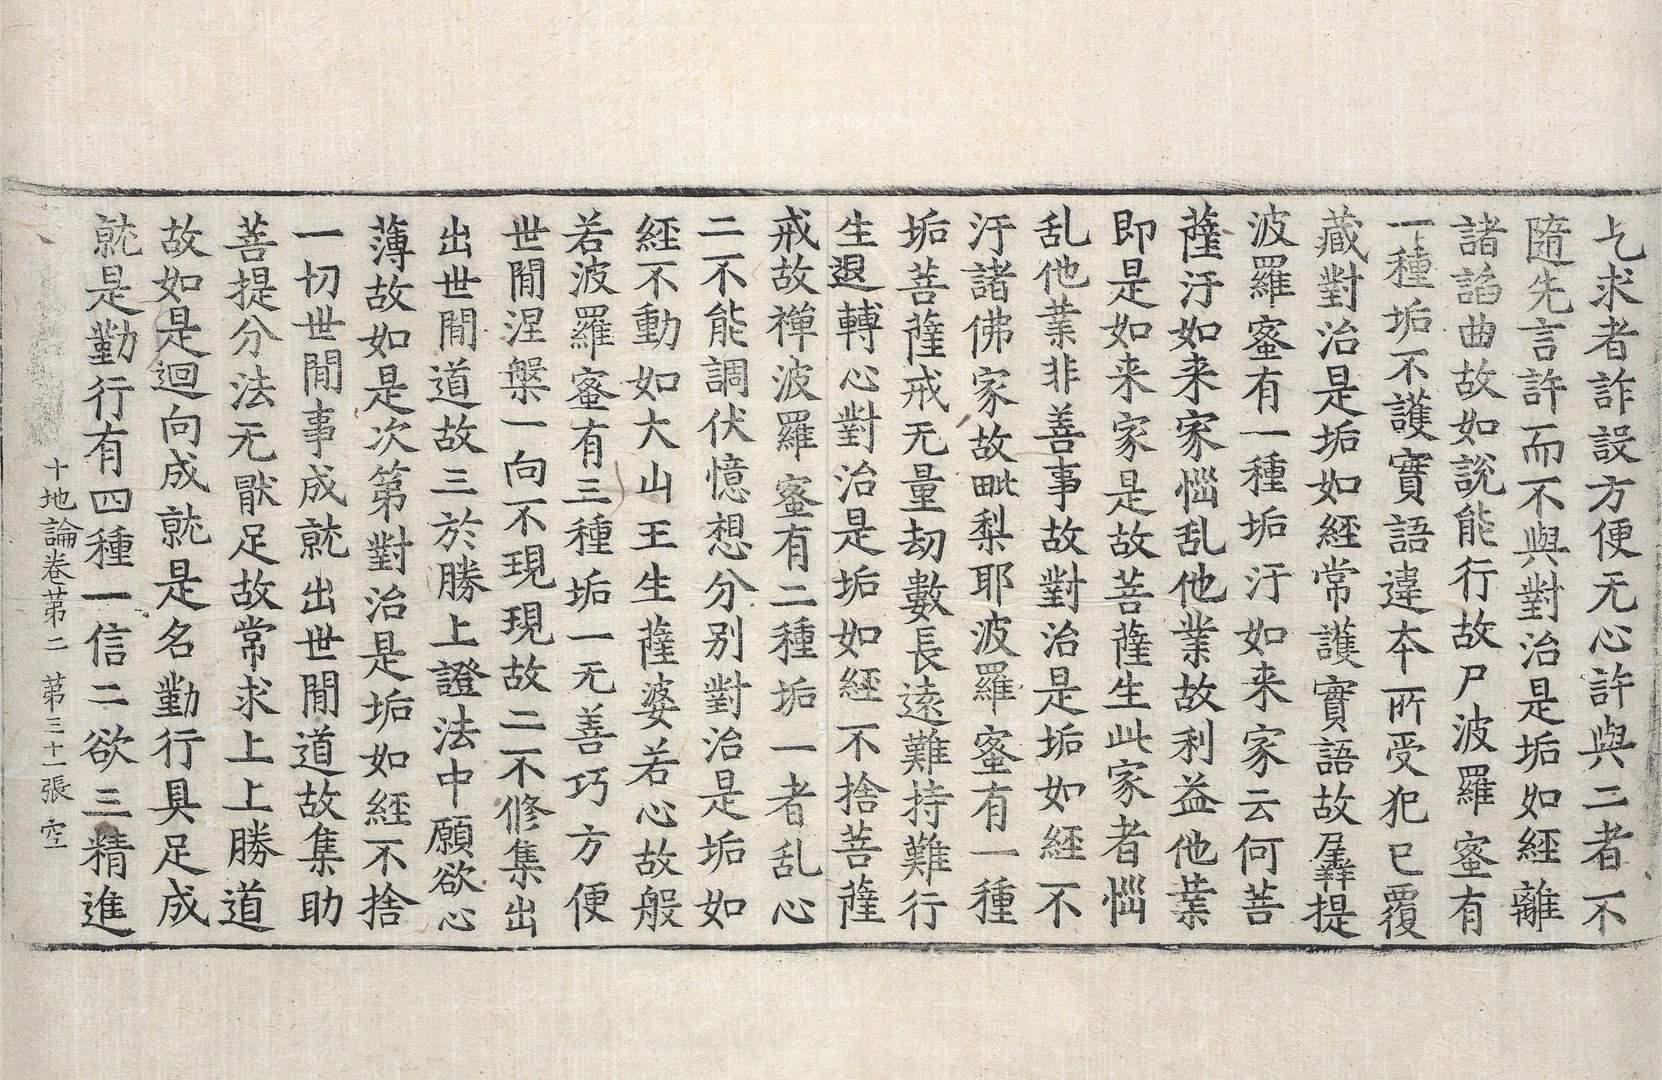 乞求者詐設方便无心許與二者不
隨先言許而不與對治是垢如經離
諸諂曲故如說能行故尸波羅蜜有
一種垢不護實語違本所受犯已覆
藏對治是垢如經常護實語故羼提
波羅蜜有一種垢汙如来家云何菩
薩汙如来家惱乱他業故利益他業
即是如来家是故菩薩生此家者惱
乱他業非善事故對治是垢如經不
汙諸佛家故毗梨耶波羅蜜有一種
垢菩薩戒无量劫數長遠難持難行
生退轉心對治是垢如經不捨菩薩
戒故禪波羅蜜有二種垢一者乱心
二不能調伏憶想分別對治是垢如
經不動如大山王生薩婆若心故般
若波羅蜜有三種垢一无善巧方便
世間涅槃一向不現現故二不修集出
出世間道故三於勝上證法中願欲心
薄故如是次第對治是垢如經不捨
一切世間事成就出世間道故集助
菩提分法无猒足故常求上上勝道
故如是迴向成就是名勤行具足成
就是勤行有四種一信二欲三精進
十地論卷第二 第三十一張 空